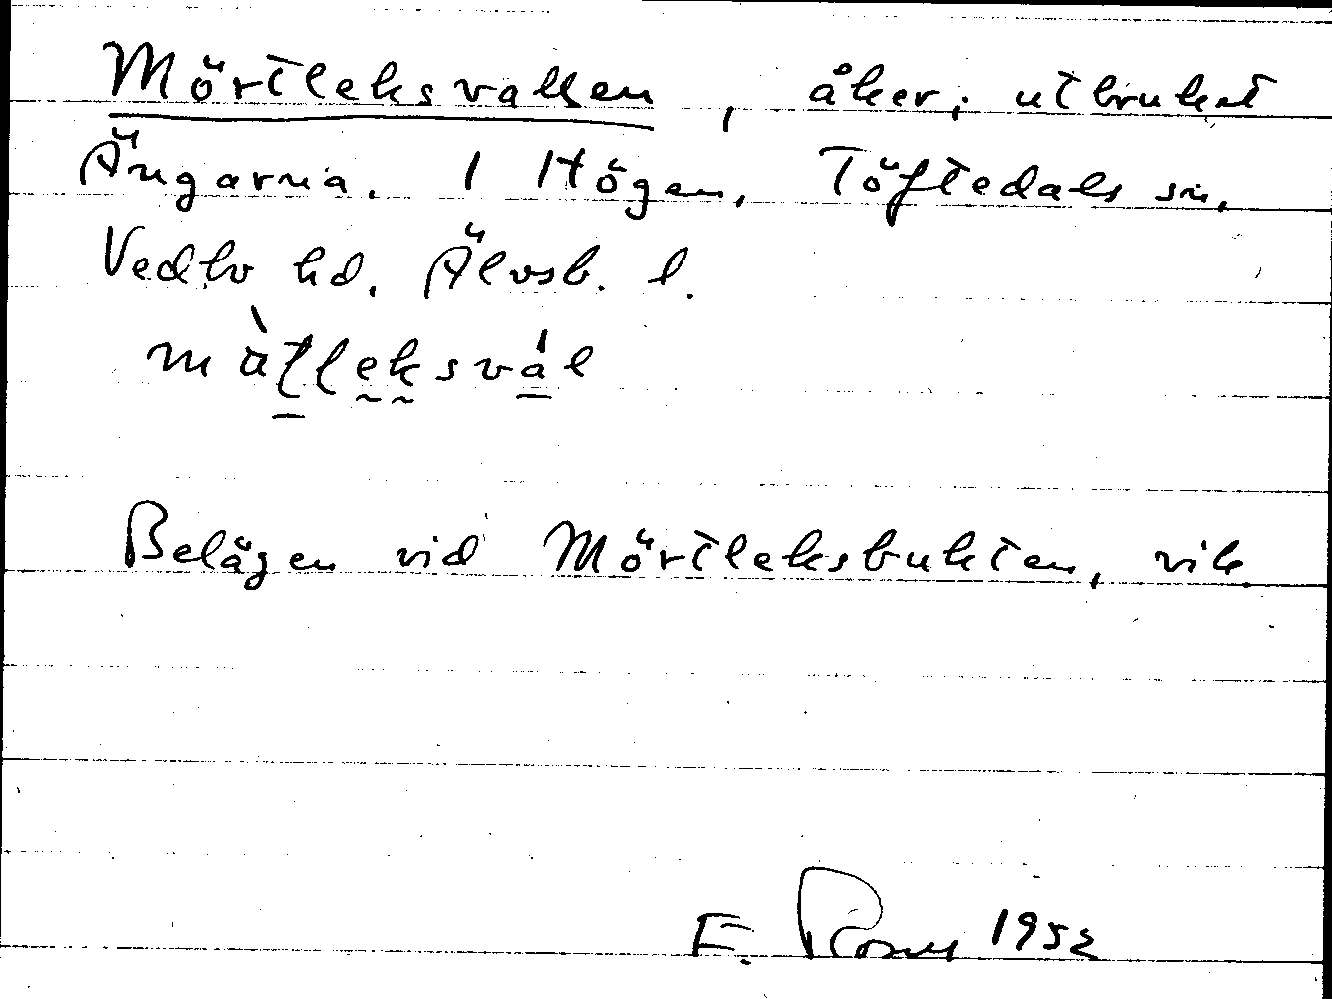 Mörtleksvallen, åker; utbrukat
Ängarna. I Högen, Töftedals sn,
Vedbo hd. Älvsb. l.
màtleksvál
Belägen vid Mörtleksbukten, vik.
E. 1952